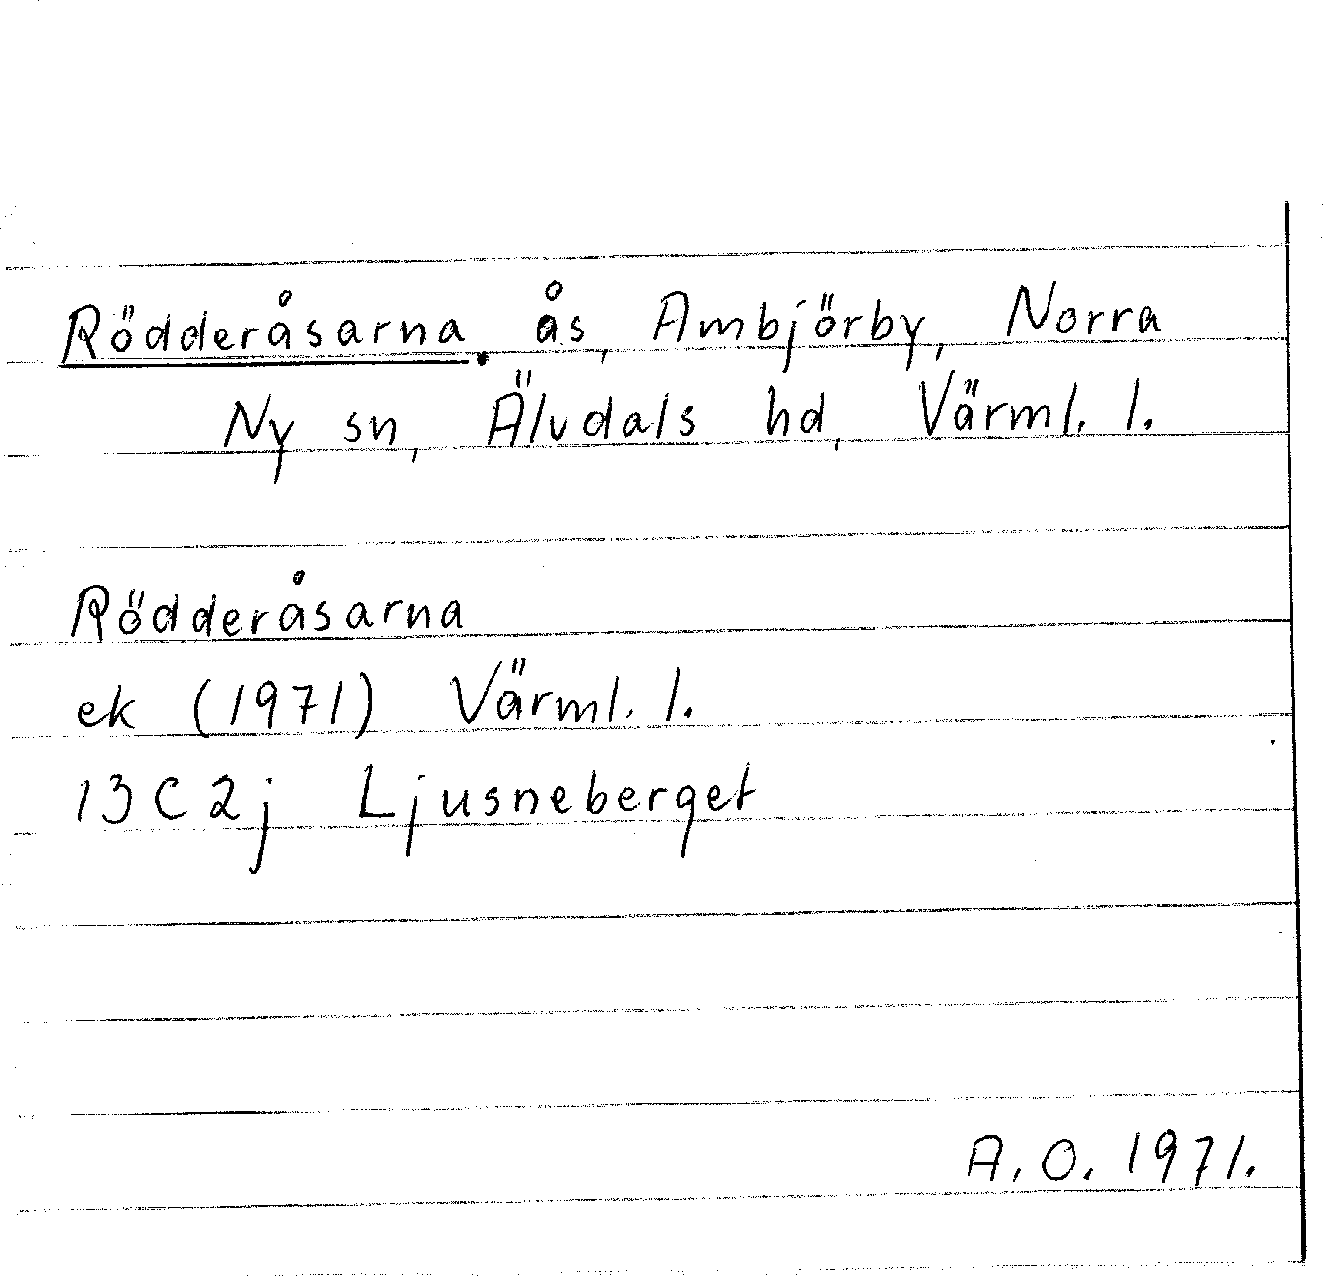 Rödderåsarna. ås, Ambjörby, Norra
Ny sn, Älvdals hd, Värml. l.
Rödderåsarna
ek (1971) Värml. l.
13C2j Ljusneberget
A.O. 1971.